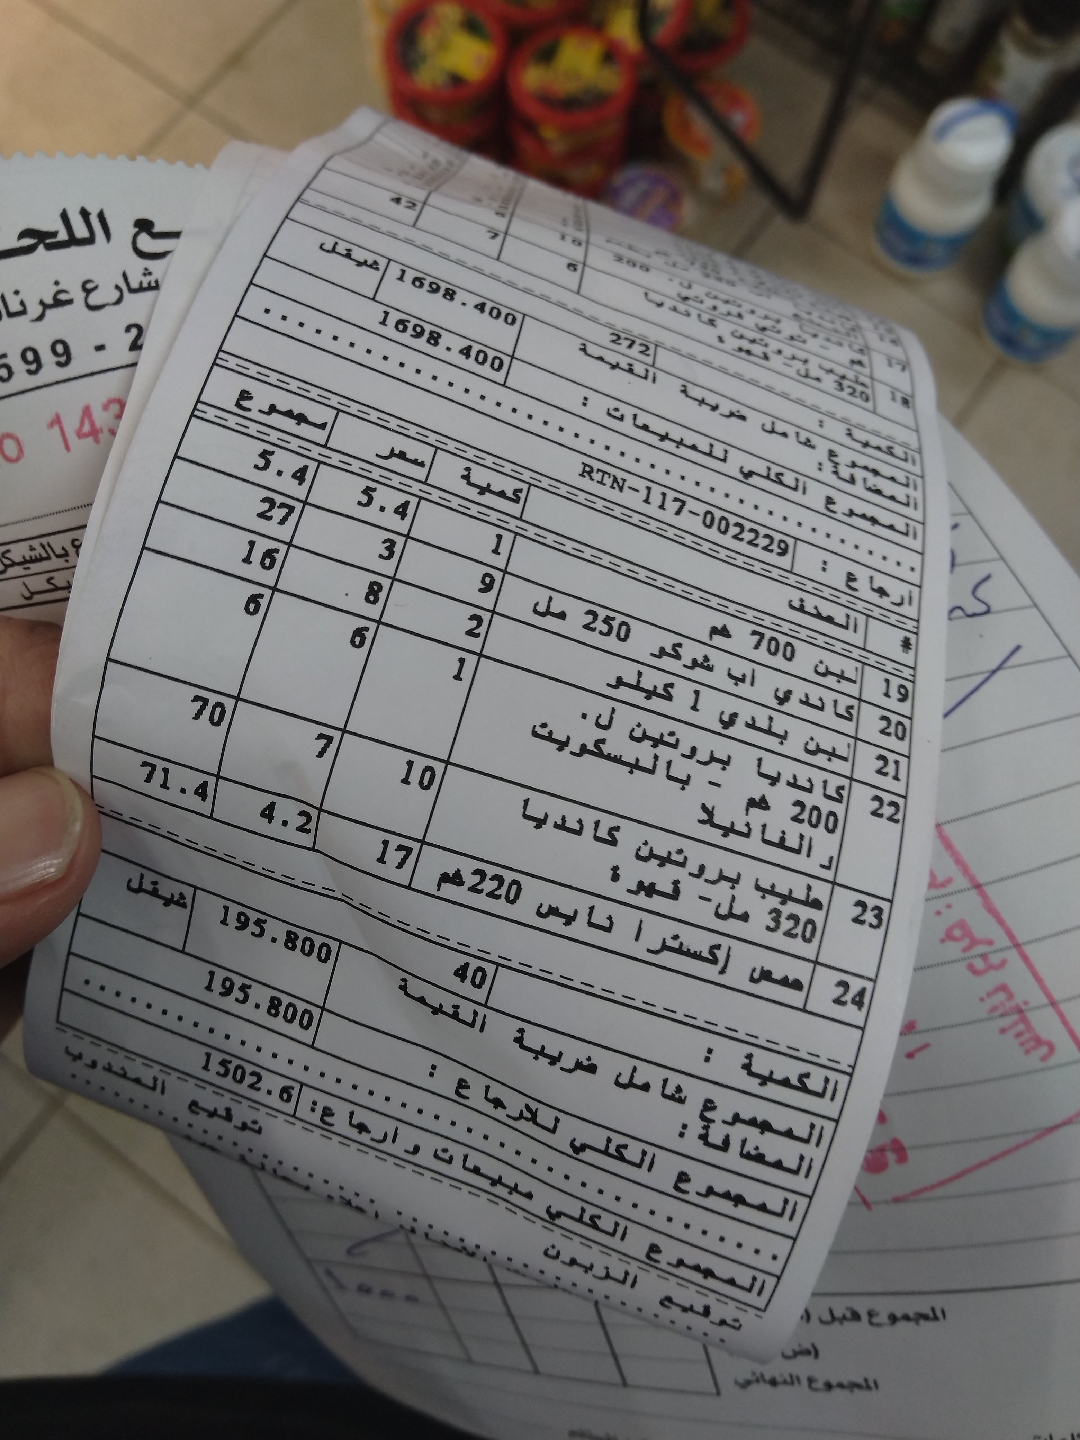 ـع اللحـ
شارع غرنا
599 - 2
0 143
بالشيكل
يكل
17
18 حليب بروتين كانديا 6 7 42
320 مل- قهوة
الكمية : 272
المجموع شامل ضريبة القيمة المضافة: 1698.400 شيقل
المجموع الكلي للمبيعات : 1698.400
ارجاع : RTN-117-002229
# الصنف كمية سعر مجموع
19 لبن 700 غم 1 5.4 5.4
20 كاندي اب شوكو 250 مل 9 3 27
21 لبن بلدي 1 كيلو 2 8 16
22 كانديا بروتين ل. 1 6 6
200 غم - بالبسكويت
والفانيلا
23 حليب بروتين كانديا 10 7 70
320 مل- قهوة
24 حمص إكسترا نايس 220غم 17 4.2 71.4
الكمية : 40
المجموع شامل ضريبة القيمة المضافة: 195.800 شيقل
المجموع الكلي للارجاع : 195.800
المجموع الكلي مبيعات و ارجاع: 1502.6
توقيع الزبون توقيع المندوب
المجموع قبل
المجموع النهائي